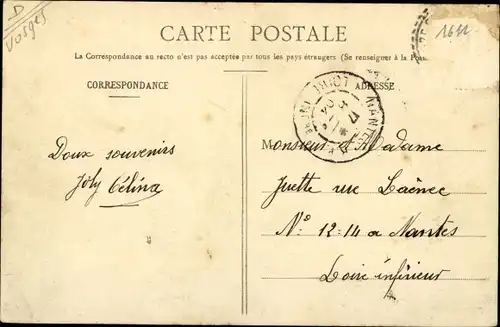 D
Vosges
CARTE POSTALE
1611
La Correspondance au recto n'est pas acceptée par tous les pays étrangers (Se renseigner à la Pos
CORRESPONDANCE
ADRESSE
NANTES
LOIRE INF
17
04
Doux souvenirs
Joly Célina
Monsieur et Madame
Juette rue Laënec
N° 12-14 a Nantes
Loire inférieur